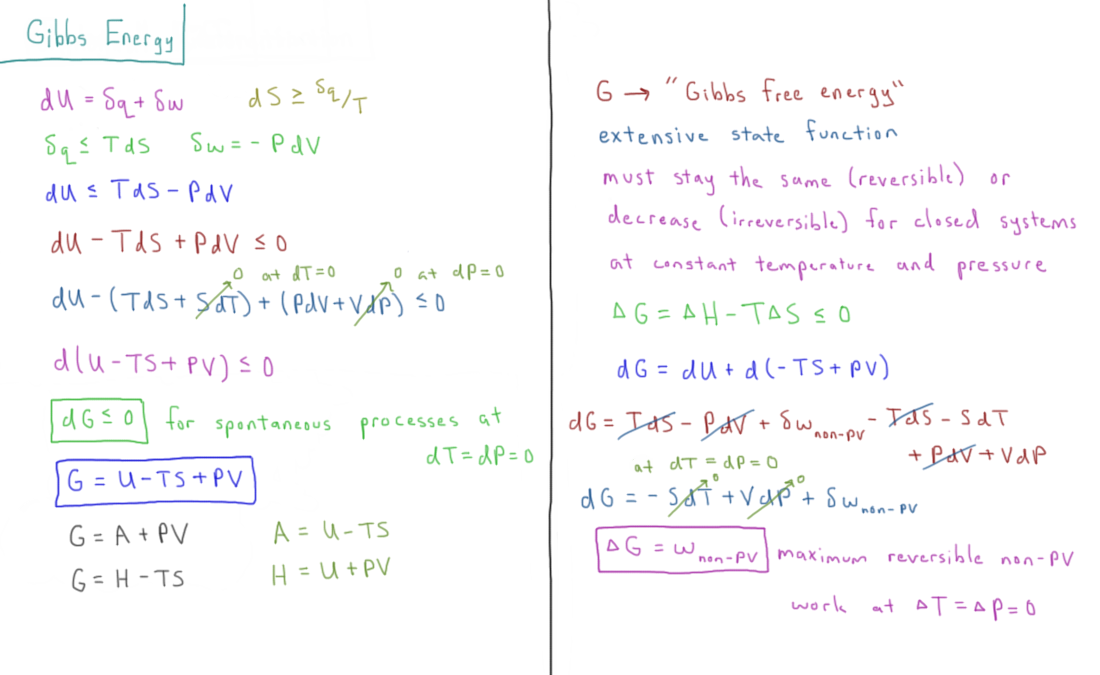 Gibbs Energy
dU = δq + δw    dS ≥ δq/T
δq ≤ TdS    δw = - PdV
dU ≤ TdS - PdV
dU - TdS + PdV ≤ 0
0 at dT=0    0 at dP=0
dU - (TdS + SdT) + (PdV + VdP) ≤ 0
d(U - TS + PV) ≤ 0
dG ≤ 0 for spontaneous processes at
dT = dP = 0
G = U - TS + PV
G = A + PV    A = U - TS
G = H - TS    H = U + PV
G → "Gibbs free energy"
extensive state function
must stay the same (reversible) or
decrease (irreversible) for closed systems
at constant temperature and pressure
ΔG = ΔH - TΔS ≤ 0
dG = dU + d(-TS + PV)
dG = TdS - PdV + δw non-PV - TdS - SdT
+ PdV + VdP
at dT = dP = 0
0    0
dG = - SdT + VdP + δw non-PV
ΔG = w non-PV maximum reversible non-PV
work at ΔT = ΔP = 0